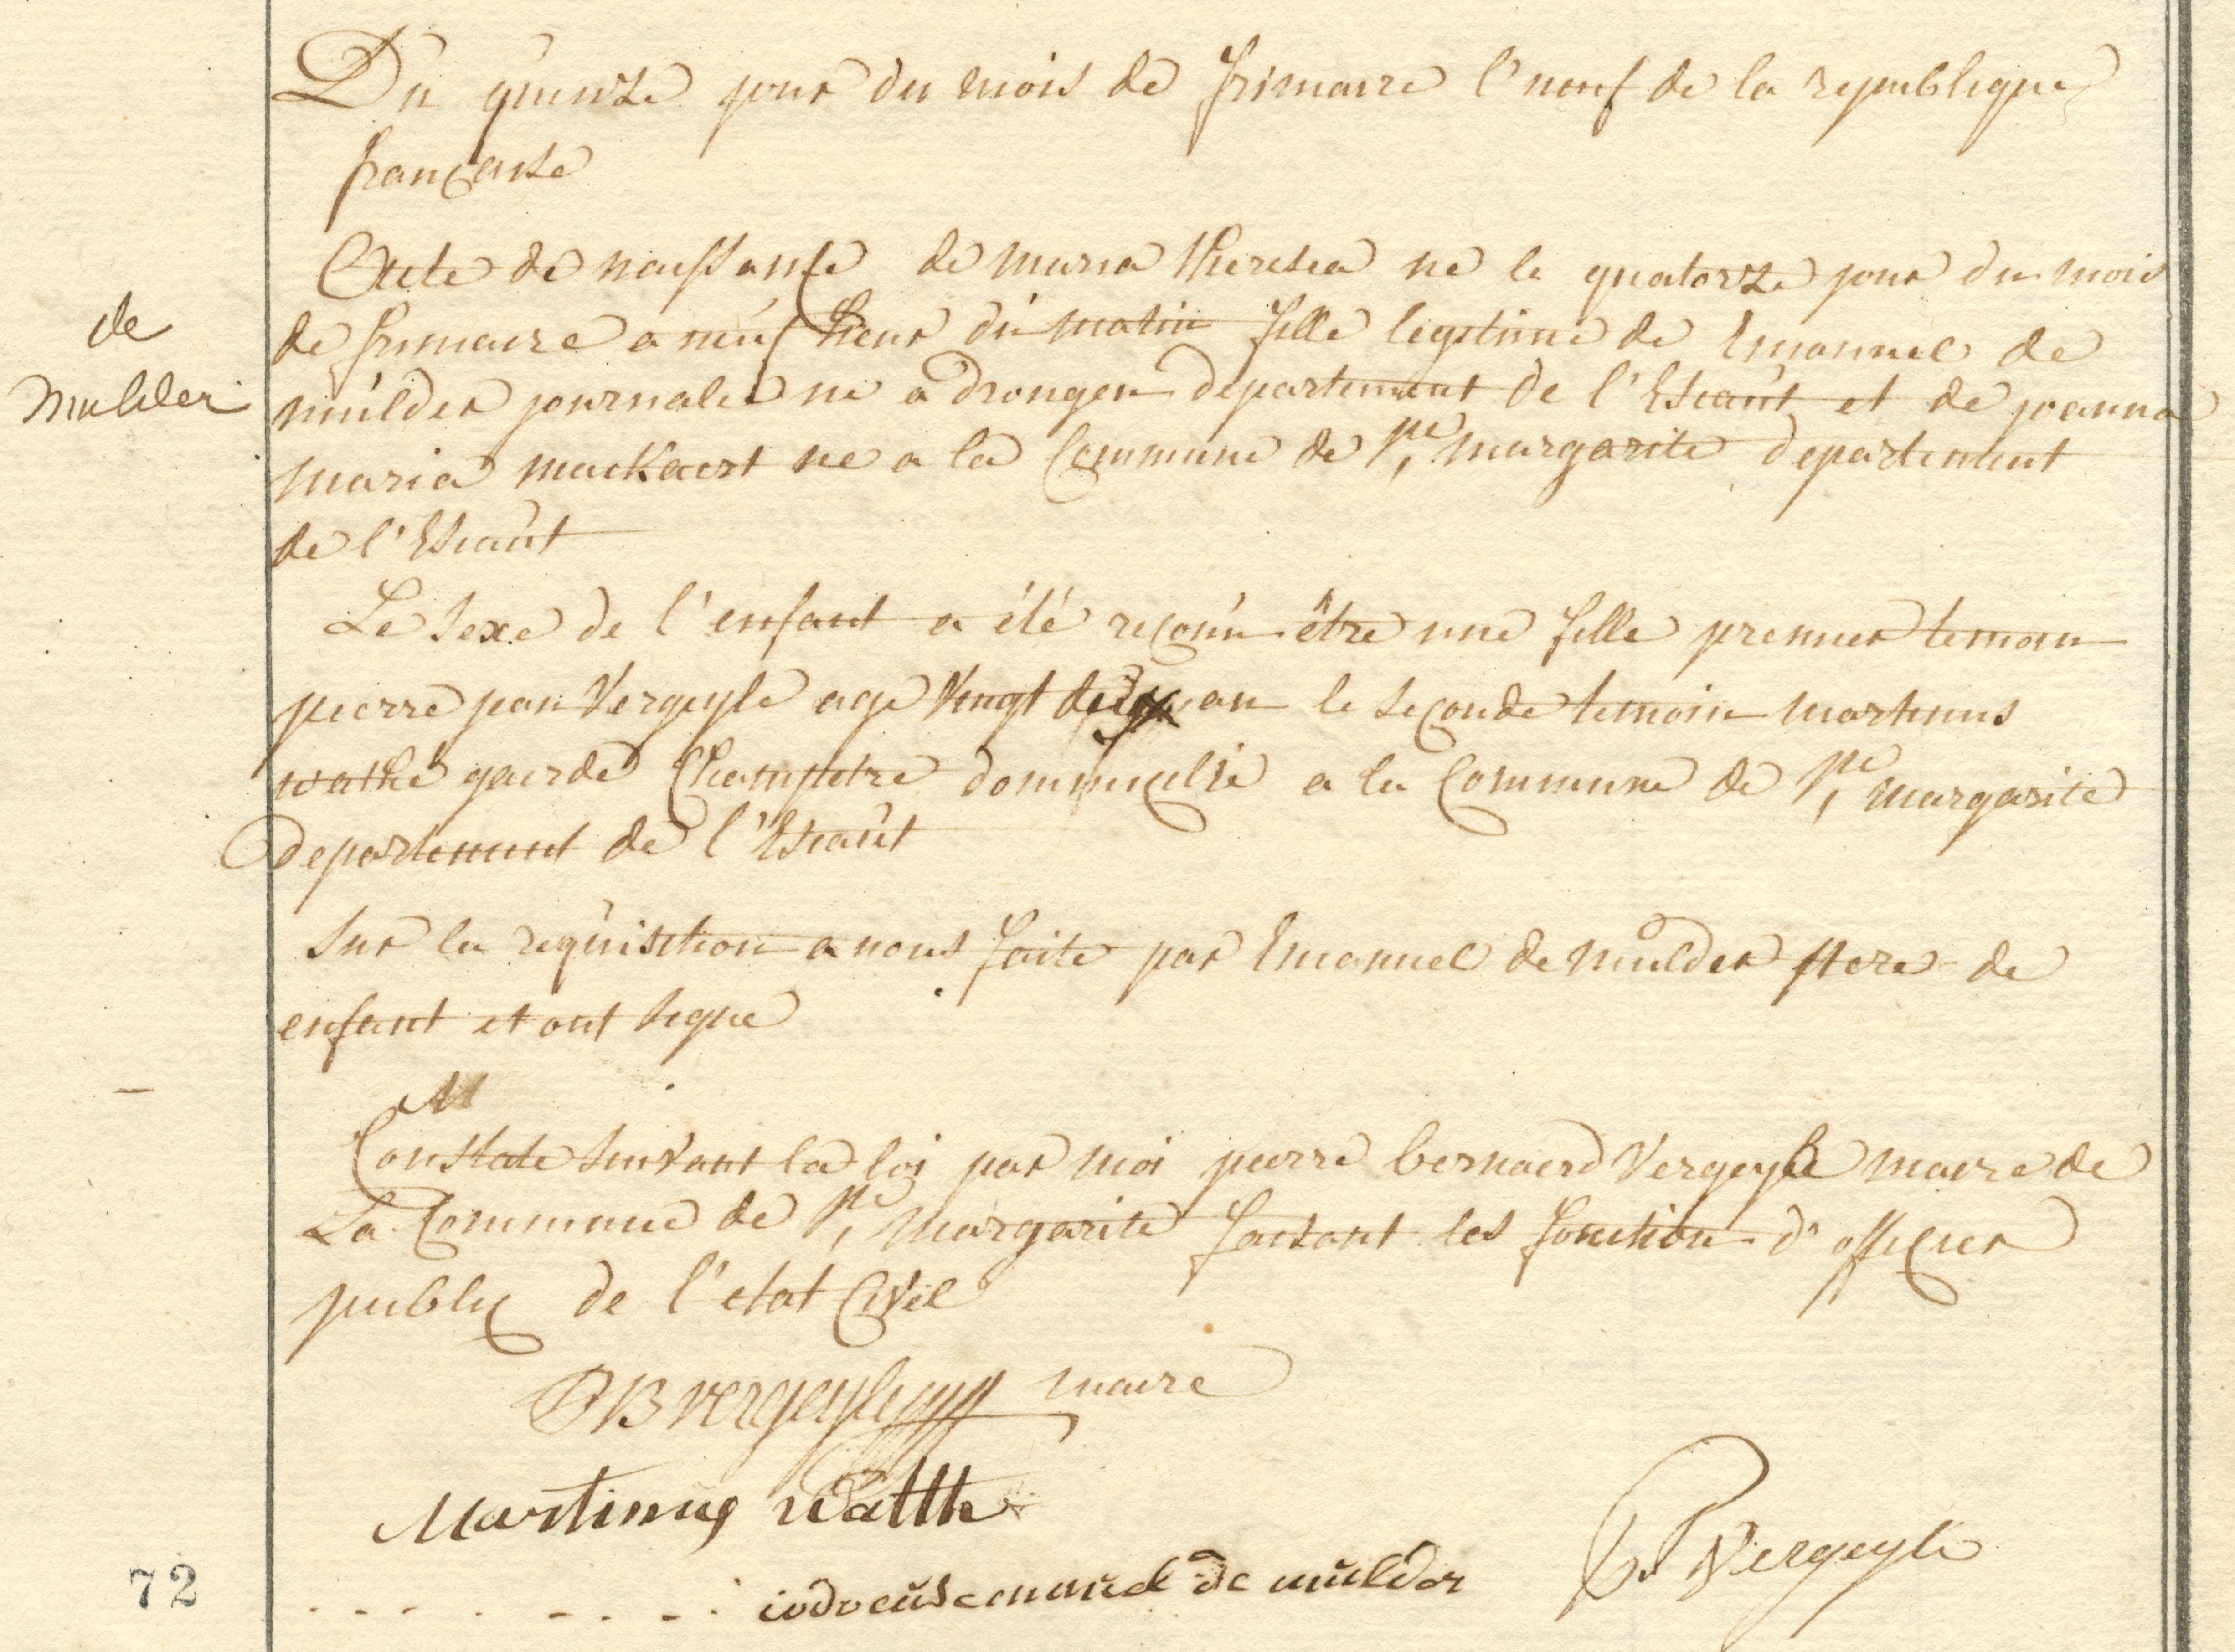 Du quinze jour du mois de frimaire l'neuf de la republique
francaise
Acte de naissance de maria theresia ne le quatorze jour du mois
de
de frimaire a neuf heur du matin fille legitime de Emanuel de
mulder
mulder journalier ne a drongen departement de l'Escaut et de joanna
maria mackaert ne a la Commune de Ste margarite departement
de l'Escaut
Le sexe de l'enfant a été reconu être une fille premier temoin
pierre jean Vergeyle age Vingt deux an le seconde temoin martinus
watthé gaerde Champetre dommicilié a la Commune de Ste margarite
departement de l'Escaut
sur la requisition a nous faite par Emanuel de mulder pere de
enfant et ont signe
Constate suivant la loi par moi pierre bernaerd Vergeyle maire de
La Commune de Ste margarite faisant les fonction d'officier
public de l'etat Civil
PB vergeyle maire
Martinus Watthe
72
iodocus emanuel de mulder
PJ Vergeyle